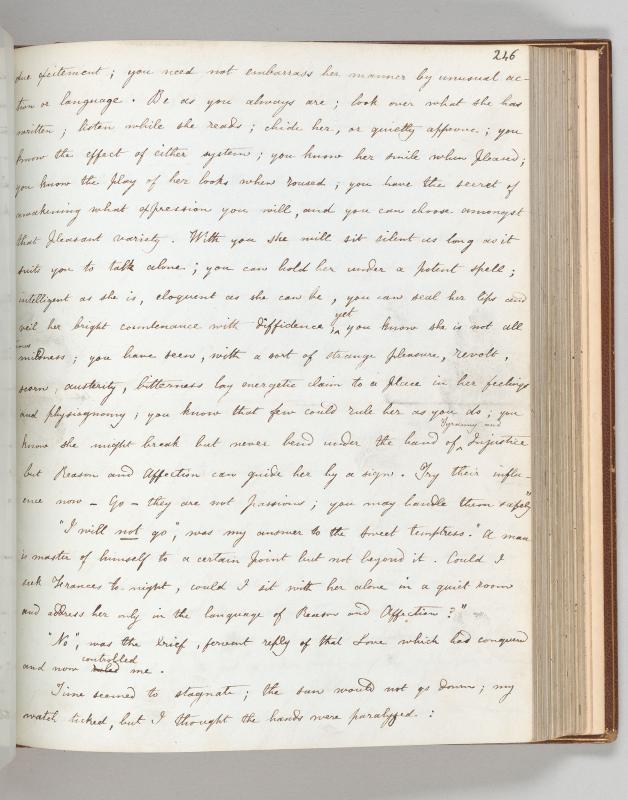 246
due excitement ; you need not embarrass her manner by unusual ac-
tion or language . Be as you always are ; look over what she has
written ; listen while she reads ; chide her, or quietly approve ; you
know the effect of either system ; you know her smile when pleased ;
you know the play of her looks when roused ; you have the secret of
awakening what expression you will, and you can choose amongst
that pleasant variety . With you she will sit silent as long as it
suits you to talk alone ; you can hold her under a potent spell ;
intelligent as she is, eloquent as she can be, you can seal her lips and
yet
veil her bright countenance with diffidence , you know she is not all
mildness ; you have seen, with a sort of strange pleasure, revolt ,
scorn , austerity, bitterness lay energetic claim to a place in her feelings
and physiognomy ; you know that few could rule her as you do ; you
Tyranny and
know she might break but never bend under the hand of Injustice
but Reason and Affection can guide her by a sign . Try their influ-
ence now – Go – they are not passions ; you may handle them safely"
"I will not go", was my answer to the sweet temptress. "A man
is master of himself to a certain point but not beyond it . Could I
seek Frances to-night, could I sit with her alone in a quiet room
and address her only in the language of Reason and Affection ?"
"No", was the brief , fervent reply of that Love which had conquered
controlled
and now me .
Time seemed to stagnate ; the sun would not go down ; my
watch ticked, but I thought the hands were paralyzed . :